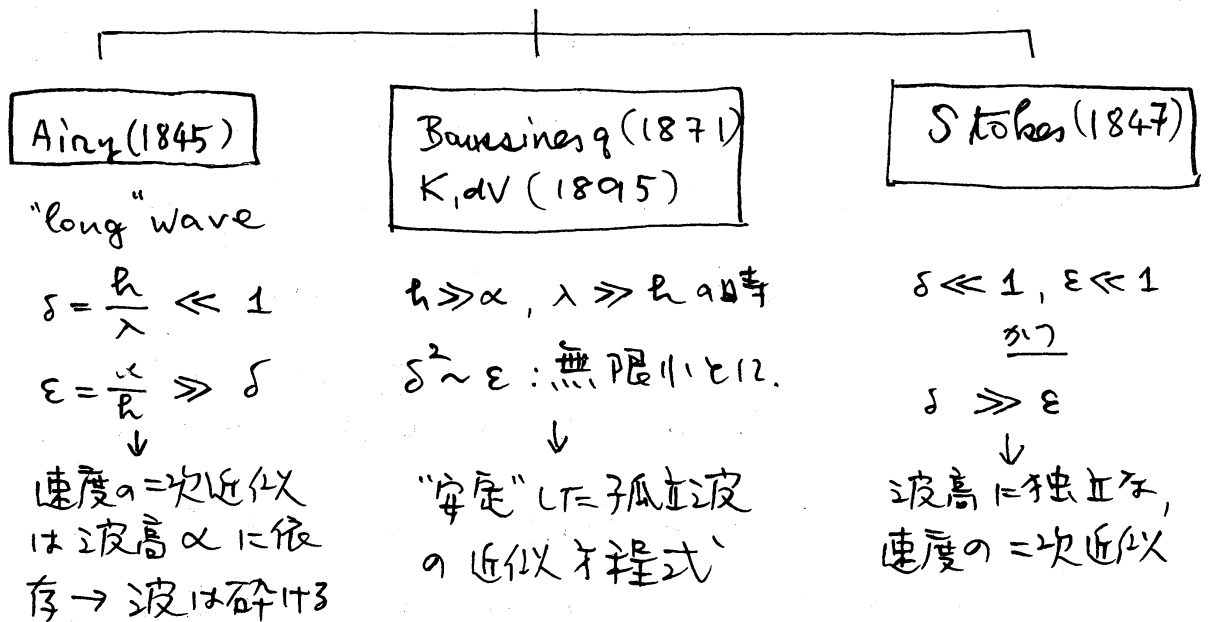 Airy (1845)
"long" wave
δ = h/λ ≪ 1
ε = α/h ≫ δ
↓
速度の二次近似
は波高 α に依
存 → 波は砕ける
Boussinesq (1871)
K,dV (1895)
h ≫ α, λ ≫ h の時
δ² ~ ε : 無限小とに.
↓
"安定"した孤立波
の近似方程式
Stokes (1847)
δ ≪ 1, ε ≪ 1
かつ
δ ≫ ε
↓
波高に独立な,
速度の二次近似